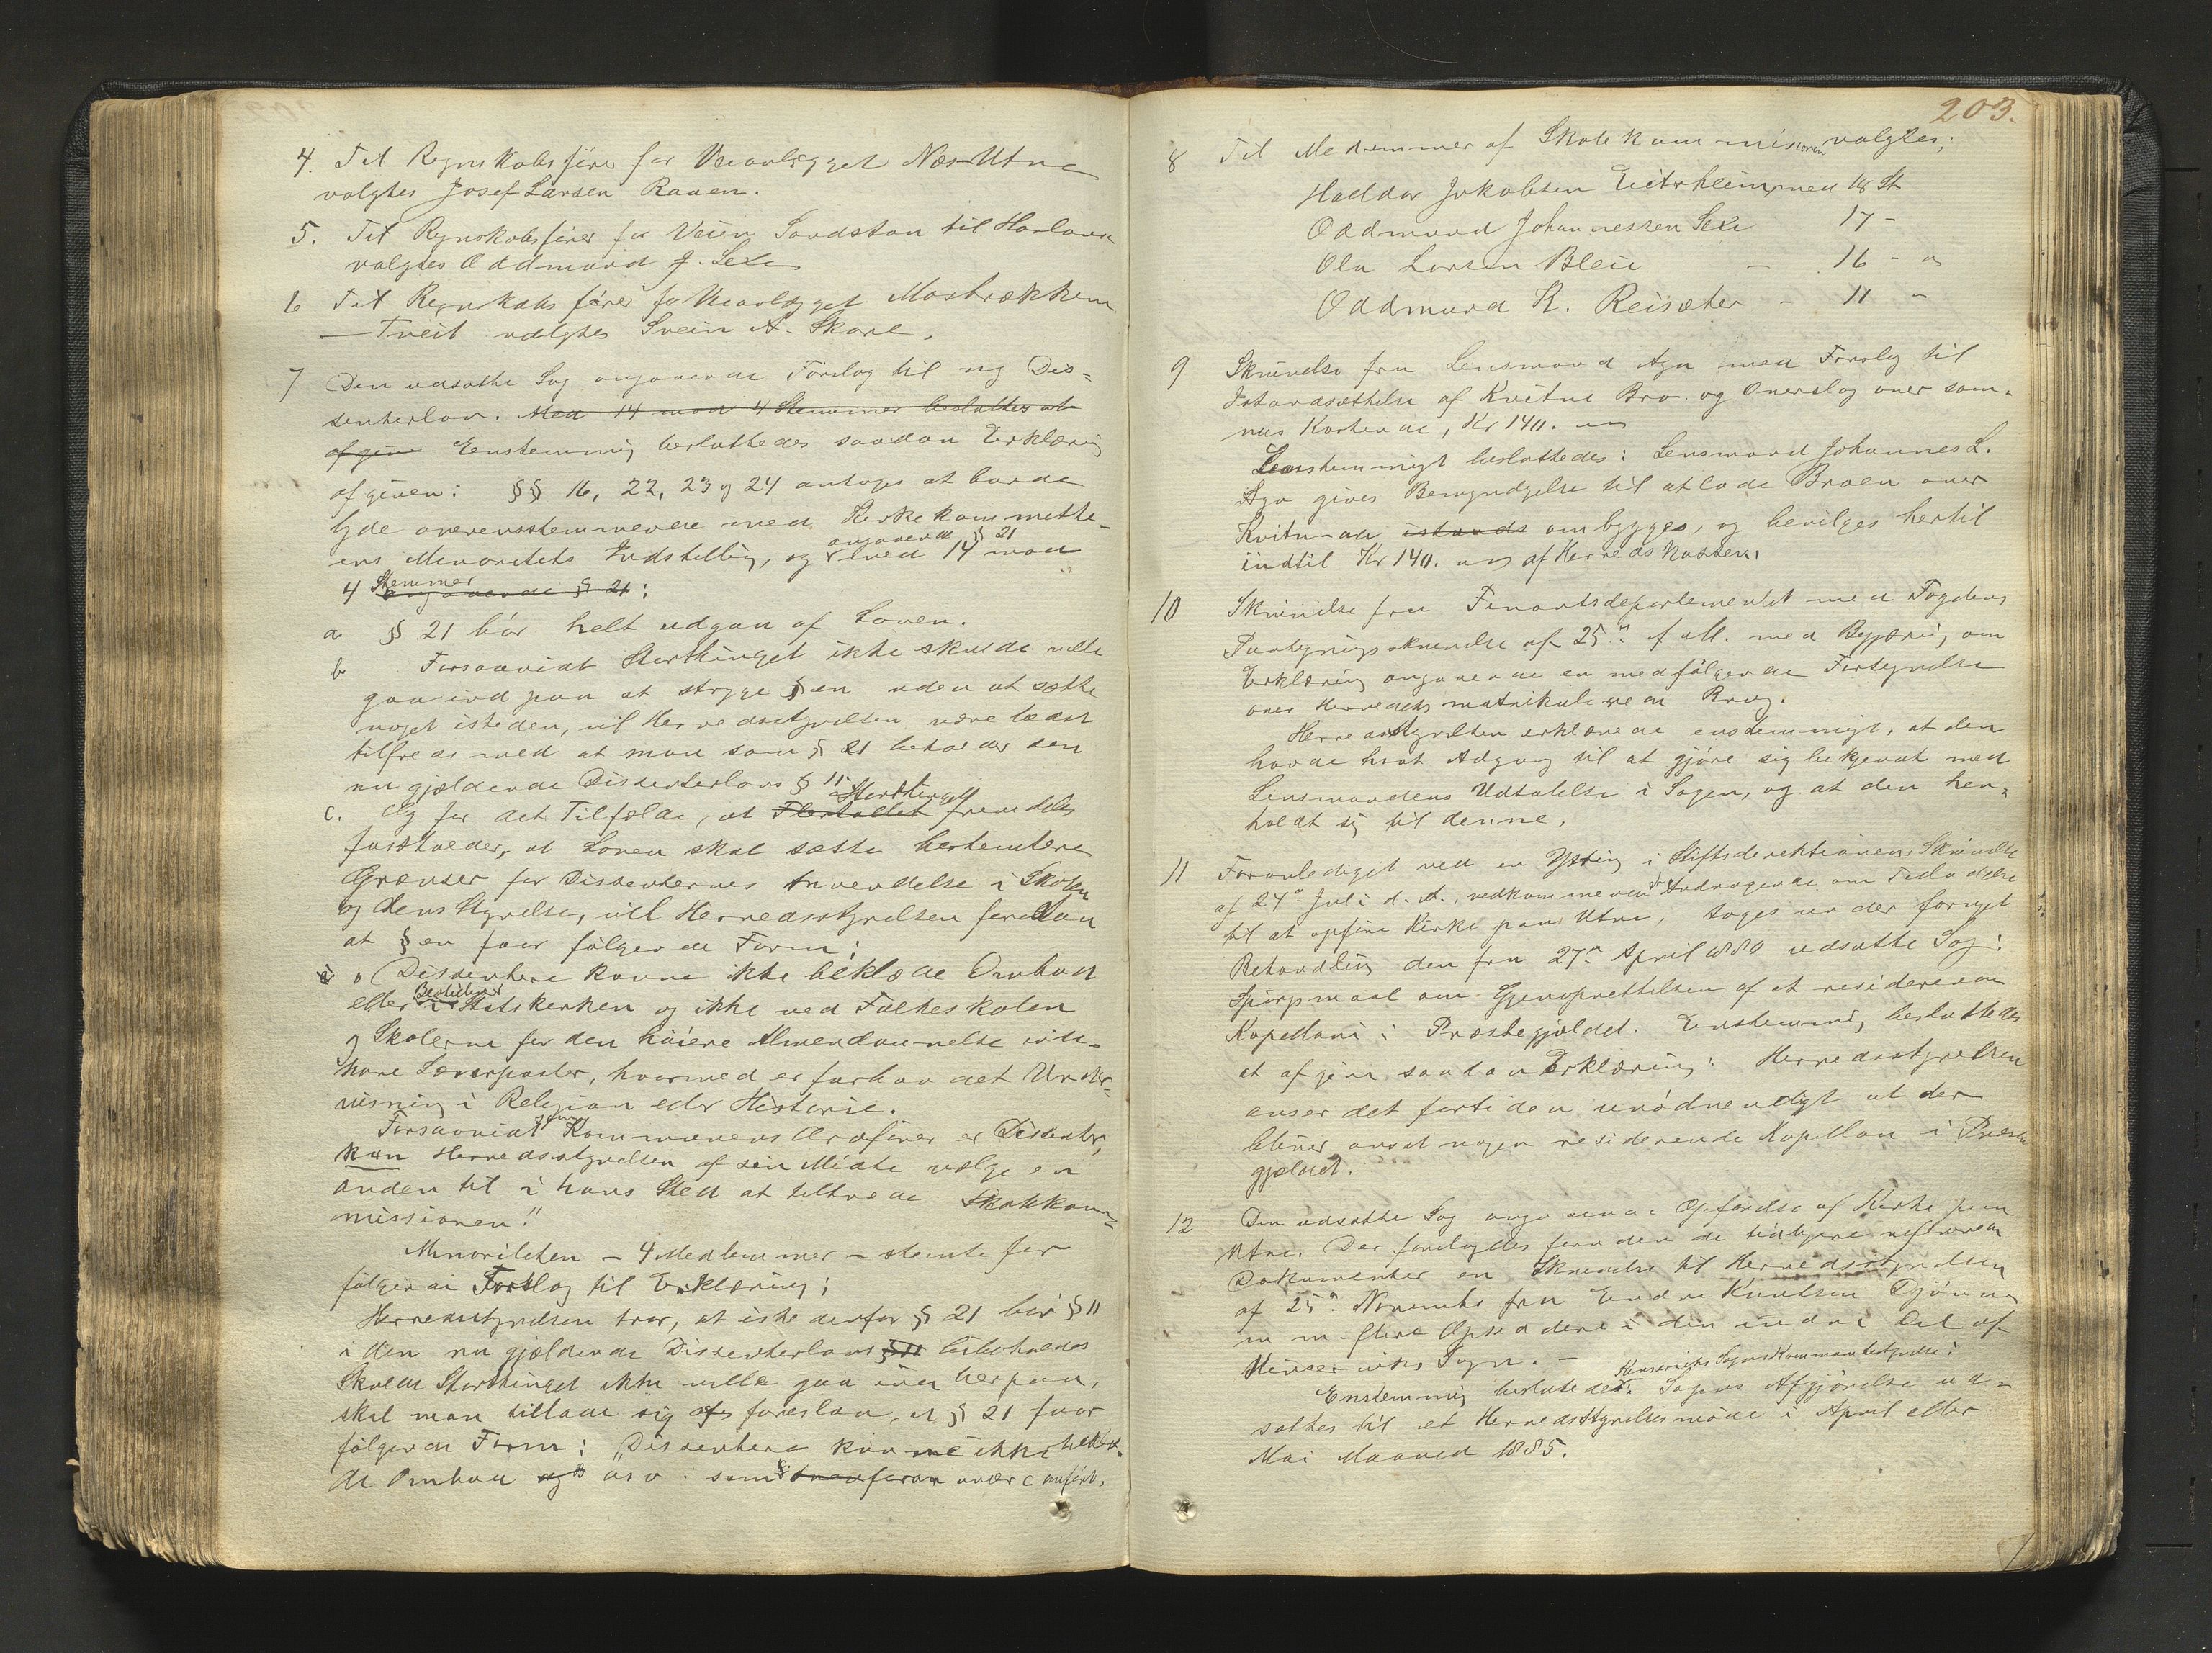 4. Til Regnskabsfører for Veianlægget Næs-Utne
valgtes Josef Larsen Raaen.
5. Til Regnskabsfører for Veien Sandstøa til Hovland
valgtes Oddmund J. Sexe
6 Til Regnskabsfører for Veianlægget Mosbrækken
— Tveit valgtes Svein A. Skare.
7 Den udsatte Sag angaaende Forslag til ny Dis-
senterlov. Med 14 mod 4 Stemmer besluttes at
afgive Eenstemmig besluttedes saadan Erklæring
afgiven: §§ 16, 22, 23 og 24 antages at burde
lyde overensstemmende med Kirkekommitte-
ens Minoritets Indstilling, og angaaende § 21 med 14 mod
4 Stemmer angaaende § 21:
a § 21 bør helt udgaa af Loven.
b Forsaavidt Storthinget ikke skulde ville
gaa ind paa at stryge §en uden at sætte
noget isteden, vil Herredsstyrelsen være bedst
tilfreds med at man som § 21 beholder den
nu gjældende Dissenterlovs § 11
c. Og for det Tilfælde, at Flertallet Storthinget fremdeles
fastholder, at Loven skal sætte bestemtere
Grænser for Dissenternes Anvendelse i Skolen
og dens Styrelse, vil Herredsstyrelsen foreslaa
at §en faar følgende Form:
"Dissentere kunne ikke beklæde Ombud
eller Bestillinger i Statskirken og ikke ved Folkeskolen
og Skolerne for den høiere Almendannelse inde-
have Lærerposter, hvormed er forbundet Under-
visning i Religion eller Historie.
Forsaavidt som Kommunens Ordfører er Dissenter,
kan Herredsstyrelsen af sin Midte vælge en
anden til i hans Sted at tiltræde Skolekom-
missionen."
Minoriteten – 4 Medlemmer – stemte for
følgende Forslag til Erklæring:
Herredsstyrelsen tror, at istedenfor § 21 bør § 11
i den nu gjældende Dissenterlov § 11 bibeholdes
Skulde Storthinget ikke ville gaa ind herpaa,
skal man tillade sig at foreslaa, at § 21 faar
følgende Form: "Dissentere kunne ikke beklæ-
de Ombud o. s. v. som ovenfor anført.
203.
8 Til Medlemmer af Skolekommissionen valgtes;
Haldor Jakobsen Eitrheim med 18 St.
Oddmund Johannessen Sexe 17 -
Ola Larsen Bleie — 16 - "
Oddmund K. Reisæter - 11 "
9 Skrivelse fra Lensmand Aga med Forslag til
Istandsættelse af Kvitne Bro og Overslag over sam-
mes Kostende, Kr 140.
Eenstemmigt besluttedes: Lensmand Johannes L.
Aga gives Bemyndigelse til at lade Broen over
Kvitnaa istands ombygges, og bevilges hertil
indtil Kr 140. af Herredskassen.
10 Skrivelse fra Finantsdepartementet med Fogdens
Paategningsskrivelse af 25de f. M. med Begjæring om
Erklæring angaaende en medfølgende Fortegnelse
over Herredets matrikulerede Brug.
Herredsstyrelsen erklærede enstemmigt, at den
havde havt Adgang til at gjøre sig bekjendt med
Lensmandens Udtalelse i Sagen, og at den hen-
holdt sig til denne.
11 Foranlediget ved en Ytring i Stiftsdirektionens Skrivelse
af 24de Juli d. A., vedkommende Andragende om Tilladelse
til at opføre Kirke paa Utne, toges under fornyet
Behandling den fra 27de April 1880 udsatte Sag:
Spørgsmaal om Gjenoprettelsen af et residerende
Kapellani i Præstegjældet. Enstemmig besluttedes
at afgive saadan Erklæring: Herredsstyrelsen
anser det fortiden unødvendigt at der
bliver ansat nogen residerende Kapellan i Præste-
gjældet.
12 Den udsatte Sag angaaende Opførelse af Kirke paa
Utne. Der forelagdes foruden de tidligere
Dokumenter en Skrivelse til Herredsstyrelsen
af 25de Novembr fra Endre Knutsen Djønne
m m flere Opsiddere i den indre Del af
Kinserviks Sogn. –
Enstemmig besluttedes: Kinserviks Sogns Kommunebestyrelse: Sagens Afgjørelse ud-
sattes til et Herredsstyrelsesmøde i April eller
Mai Maaned 1885.